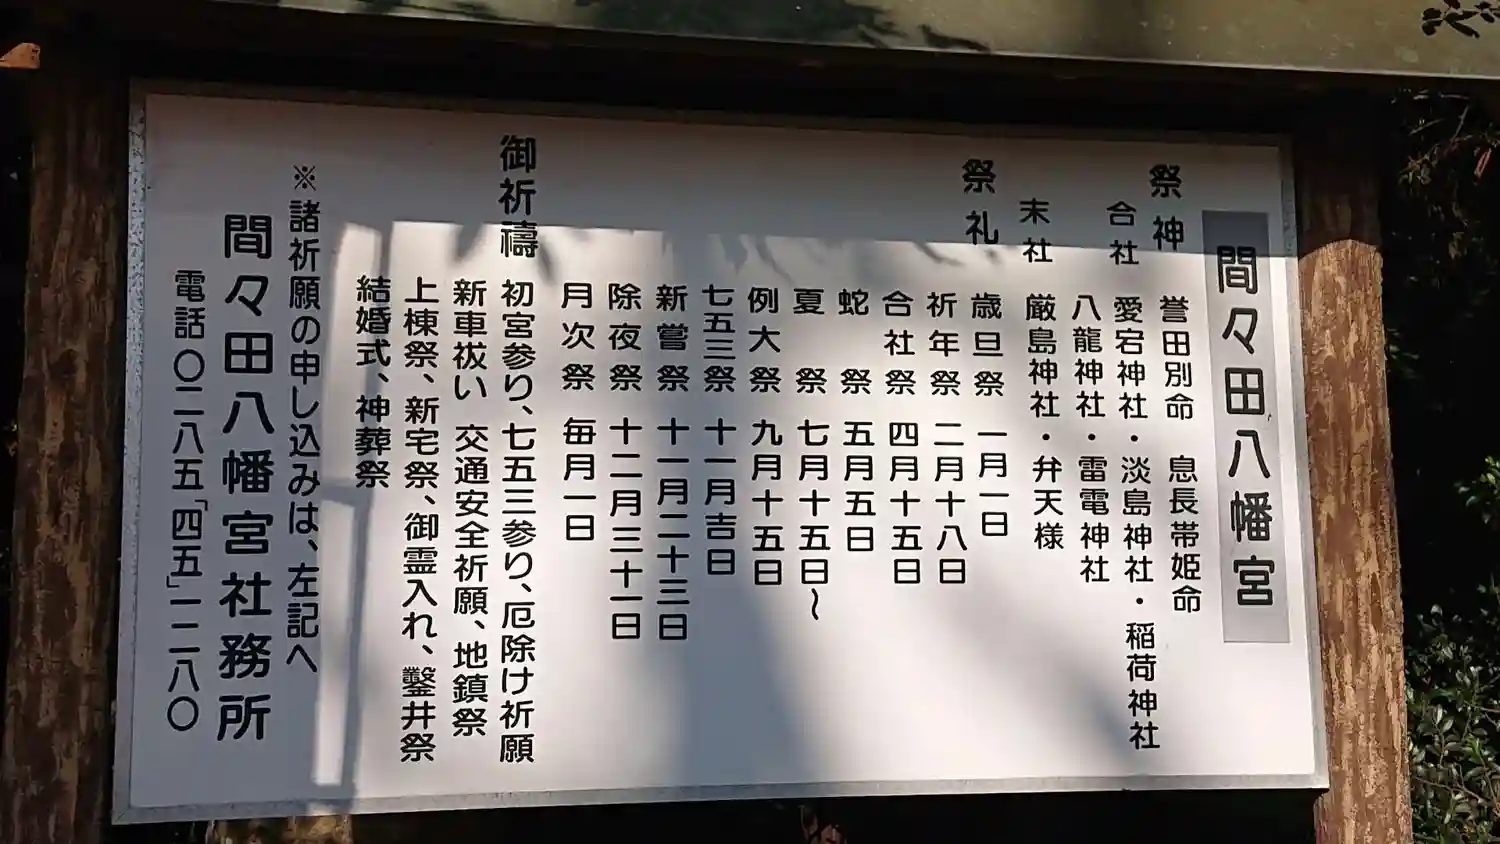 間々田八幡宮
祭神 誉田別命 息長帯姫命
合社 愛宕神社・淡島神社・稲荷神社
八龍神社・雷電神社
末社 厳島神社・弁天様
祭礼 歳旦祭 一月一日
祈年祭 二月十八日
合社祭 四月十五日
蛇祭 五月五日
夏祭 七月十五日〜
例大祭 九月十五日
七五三祭 十一月吉日
新嘗祭 十一月二十三日
除夜祭 十二月三十一日
月次祭 毎月一日
御祈禱 初宮参り、七五三参り、厄除け祈願
新車祓い 交通安全祈願、地鎮祭
上棟祭、新宅祭、御霊入れ、鑿井祭
結婚式、神葬祭
※諸祈願の申し込みは、左記へ
間々田八幡宮社務所
電話〇二八五「四五」一二八〇